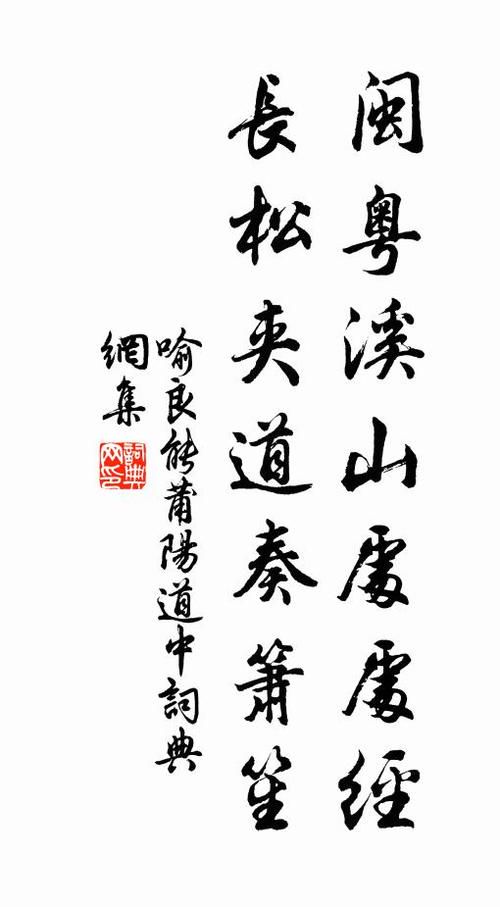 閩粵溪山處處經
長松夾道奏簫笙
喻良能莆陽道中詞典
網集
詞典
网印